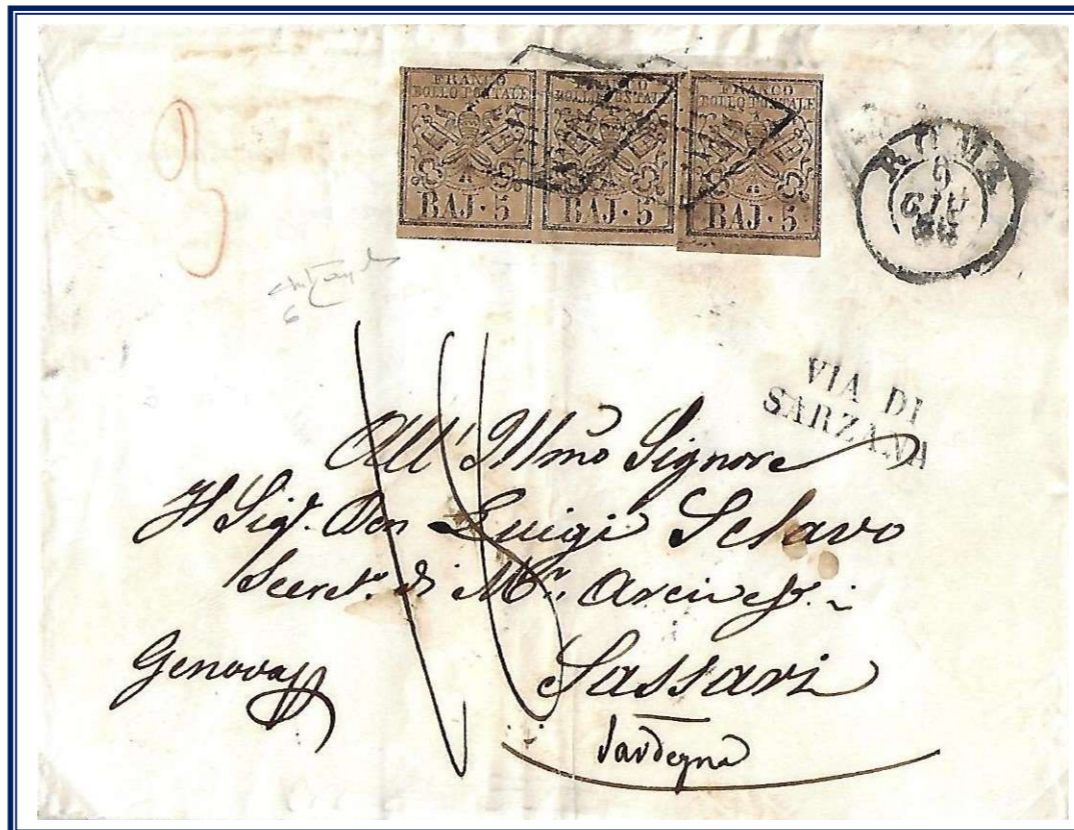 FRANCO
BOLLO POSTALE
BAJ · 5
FRANCO
BOLLO POSTALE
BAJ · 5
FRANCO
BOLLO POSTALE
BAJ · 5
ROMA
9
GIU
3
VIA DI
SARZANA
All' Illmo Signore
Il Sigr. Don Luigi Sclavo
Secret. di Mr. Arcivesc. i
Sassari
Genova
Sardegna